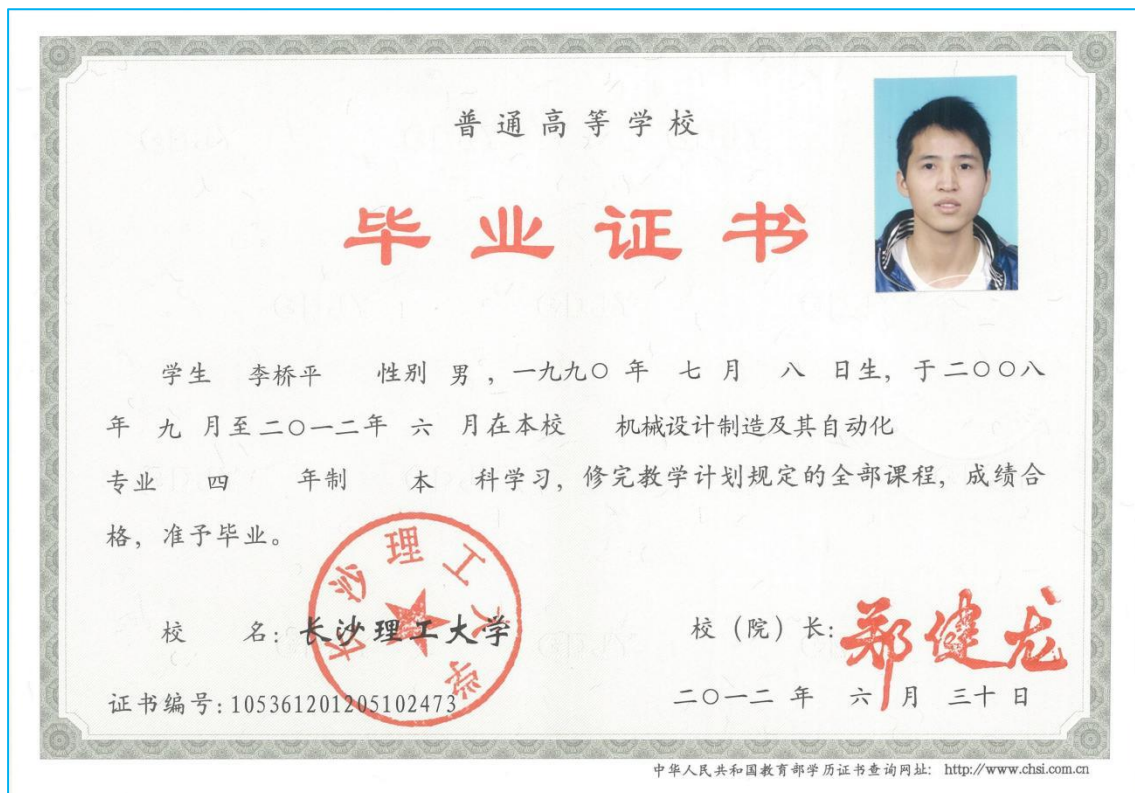 普通高等学校
毕业证书
学生 李桥平 性别 男 ，一九九〇 年 七 月 八 日生，于二〇〇八
年 九 月至二〇一二年 六 月在本校 机械设计制造及其自动化
专业 四 年制 本 科学习，修完教学计划规定的全部课程，成绩合
格，准予毕业。
长沙理工大学
校 名：长沙理工大学
校（院）长：郑健龙
证书编号：105361201205102473
二〇一二 年 六 月 三十 日
中华人民共和国教育部学历证书查询网址： http://www.chsi.com.cn